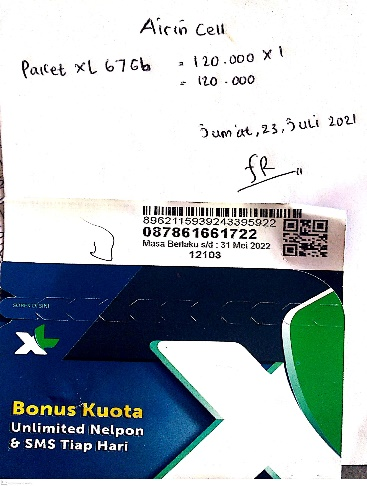 Airin Cell
Paket XL 67Gb = 120.000 x 1
= 120.000
Jum'at, 23, Juli 2021
fR
8962115939243395922
087861661722
Masa Berlaku s/d : 31 Mei 2022
12103
SOBEK DI SINI
XL
Bonus Kuota
Unlimited Nelpon
& SMS Tiap Hari